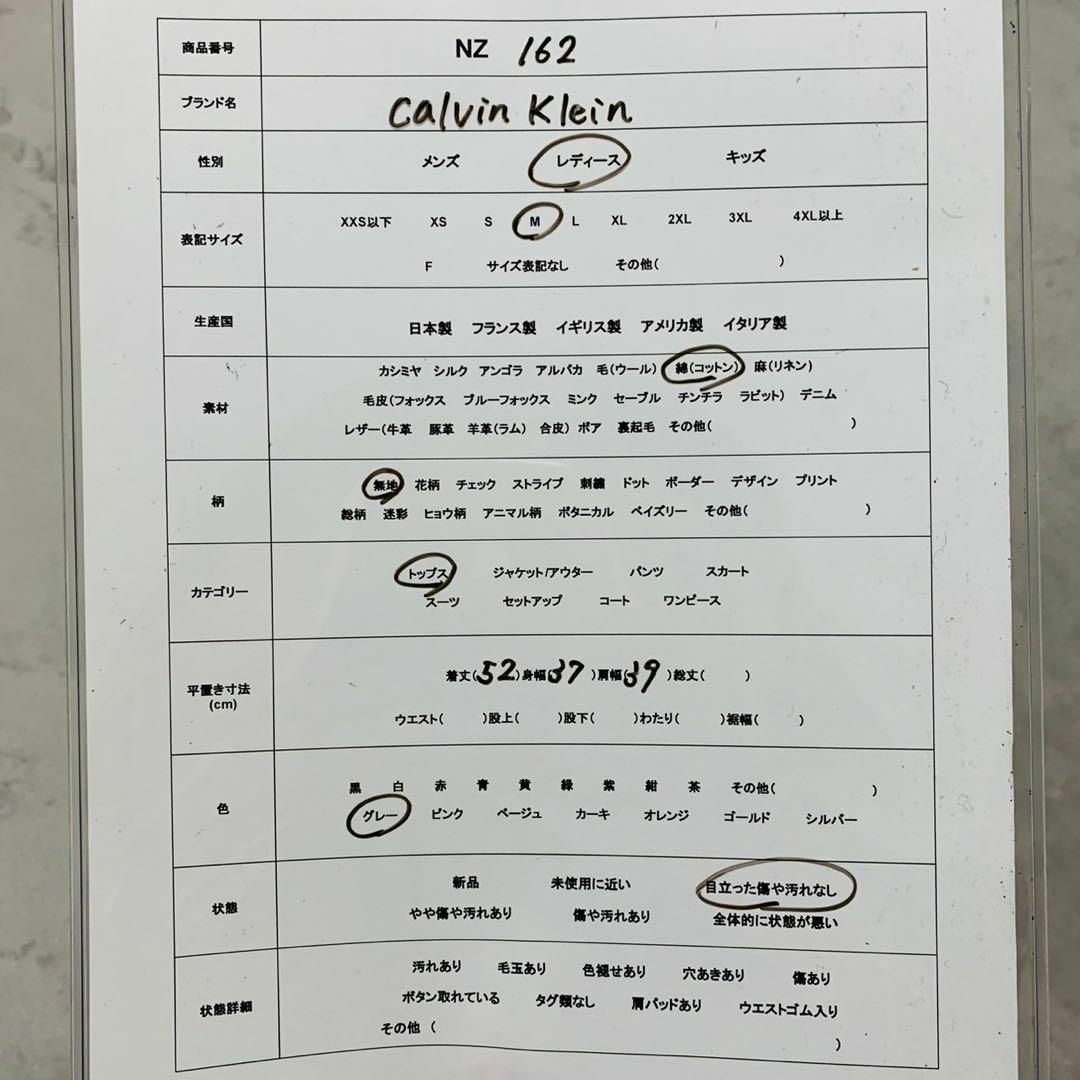 商品番号 NZ 162
ブランド名 Calvin Klein
性別 メンズ レディース キッズ
表記サイズ XXS以下 XS S M L XL 2XL 3XL 4XL以上
F サイズ表記なし その他( )
生産国 日本製 フランス製 イギリス製 アメリカ製 イタリア製
素材 カシミヤ シルク アンゴラ アルパカ 毛(ウール) 綿(コットン) 麻(リネン)
毛皮(フォックス ブルーフォックス ミンク セーブル チンチラ ラビット) デニム
レザー(牛革 豚革 羊革(ラム) 合皮) ボア 裏起毛 その他( )
柄 無地 花柄 チェック ストライプ 刺繍 ドット ボーダー デザイン プリント
総柄 迷彩 ヒョウ柄 アニマル柄 ボタニカル ペイズリー その他( )
カテゴリー トップス ジャケット/アウター パンツ スカート
スーツ セットアップ コート ワンピース
平置き寸法 (cm) 着丈(52)身幅(37)肩幅(39)総丈( )
ウエスト( )股上( )股下( )わたり( )裾幅( )
色 黒 白 赤 青 黄 緑 紫 紺 茶 その他( )
グレー ピンク ベージュ カーキ オレンジ ゴールド シルバー
状態 新品 未使用に近い 目立った傷や汚れなし
やや傷や汚れあり 傷や汚れあり 全体的に状態が悪い
状態詳細 汚れあり 毛玉あり 色褪せあり 穴あきあり 傷あり
ボタン取れている タグ類なし 肩パッドあり ウエストゴム入り
その他 ( )